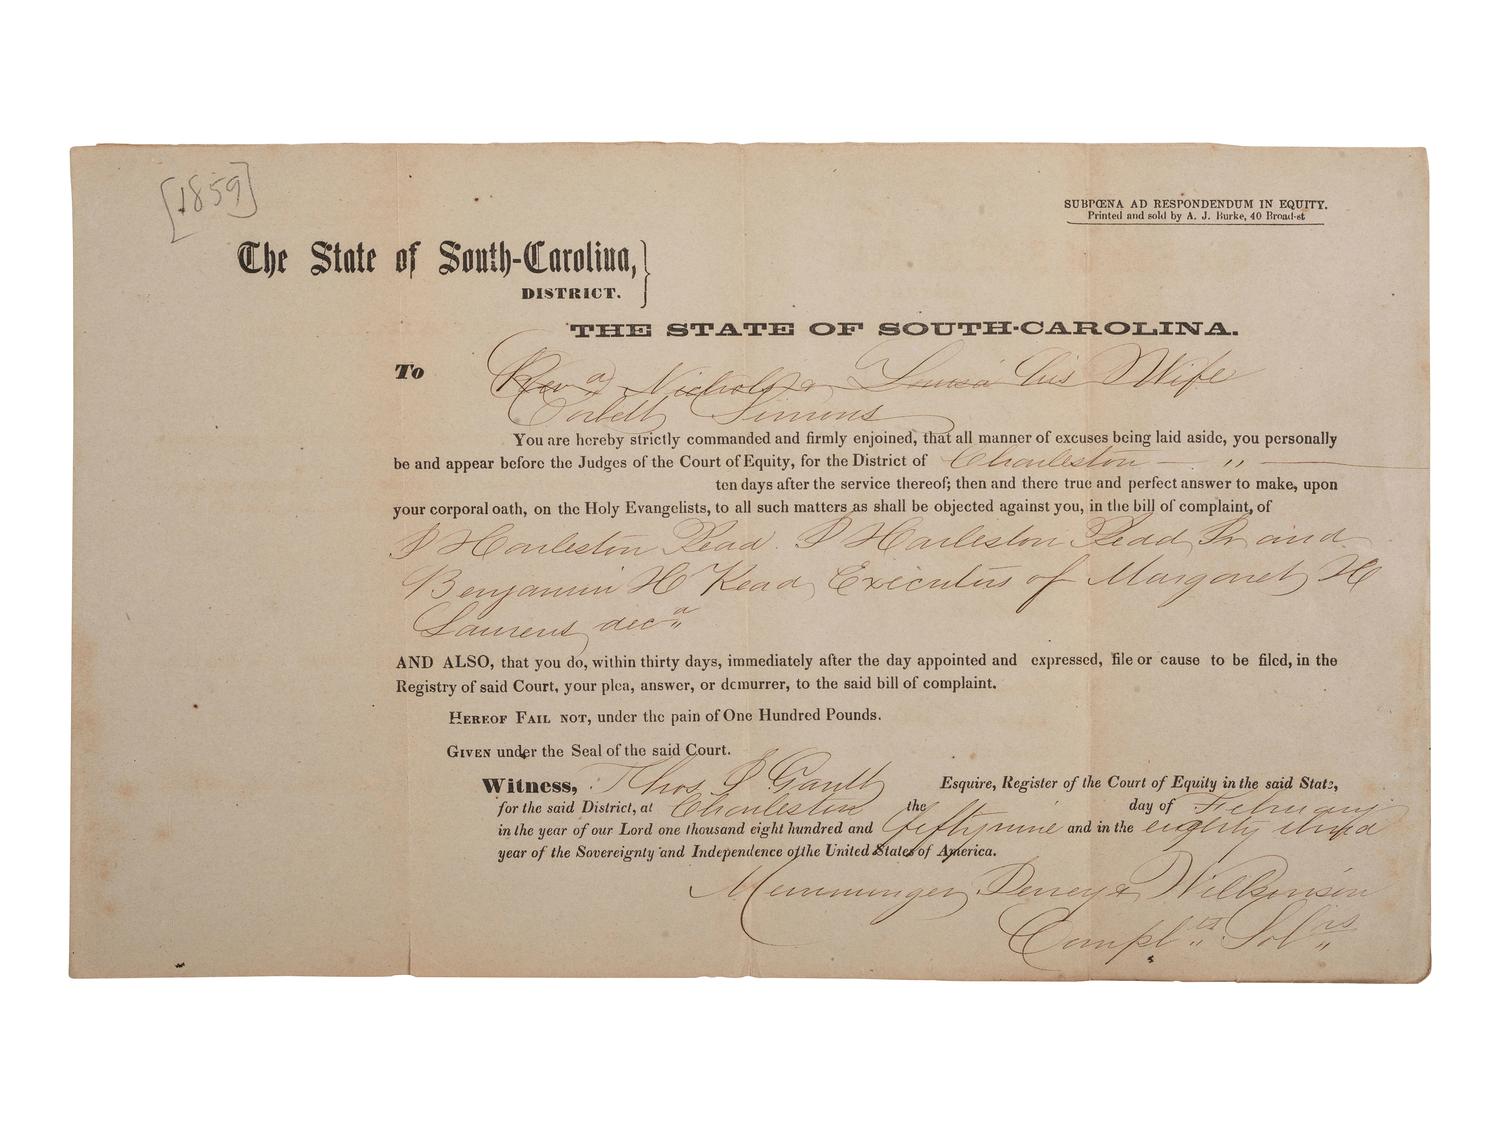 [1859]
SUBPŒNA AD RESPONDENDUM IN EQUITY.
Printed and sold by A. J. Burke, 40 Broad-st
The State of South-Carolina,
DISTRICT.
THE STATE OF SOUTH-CAROLINA.
To Revd Nichols & Louisa his Wife
Corbett Simons
You are hereby strictly commanded and firmly enjoined, that all manner of excuses being laid aside, you personally
be and appear before the Judges of the Court of Equity, for the District of Charleston — " —
ten days after the service thereof; then and there true and perfect answer to make, upon
your corporal oath, on the Holy Evangelists, to all such matters as shall be objected against you, in the bill of complaint, of
J Harleston Read J Harleston Read Jr and
Benjamin H Read Executors of Margaret H
Laurens decd
AND ALSO, that you do, within thirty days, immediately after the day appointed and expressed, file or cause to be filed, in the
Registry of said Court, your plea, answer, or demurrer, to the said bill of complaint.
HEREOF FAIL NOT, under the pain of One Hundred Pounds.
GIVEN under the Seal of the said Court.
Witness, Thos J Gantt Esquire, Register of the Court of Equity in the said State,
for the said District, at Charleston the day of February
in the year of our Lord one thousand eight hundred and fifty nine and in the eighty third
year of the Sovereignty and Independence of the United States of America.
Memminger Jervey & Wilkinson
Complts Solrs